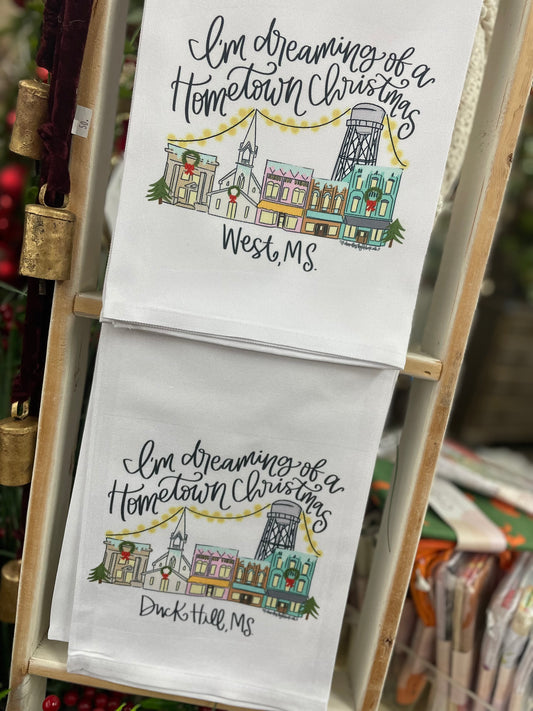 I'm dreaming of a
Hometown Christmas
West, MS.
I'm dreaming of a
Hometown Christmas
Duck Hill, MS.